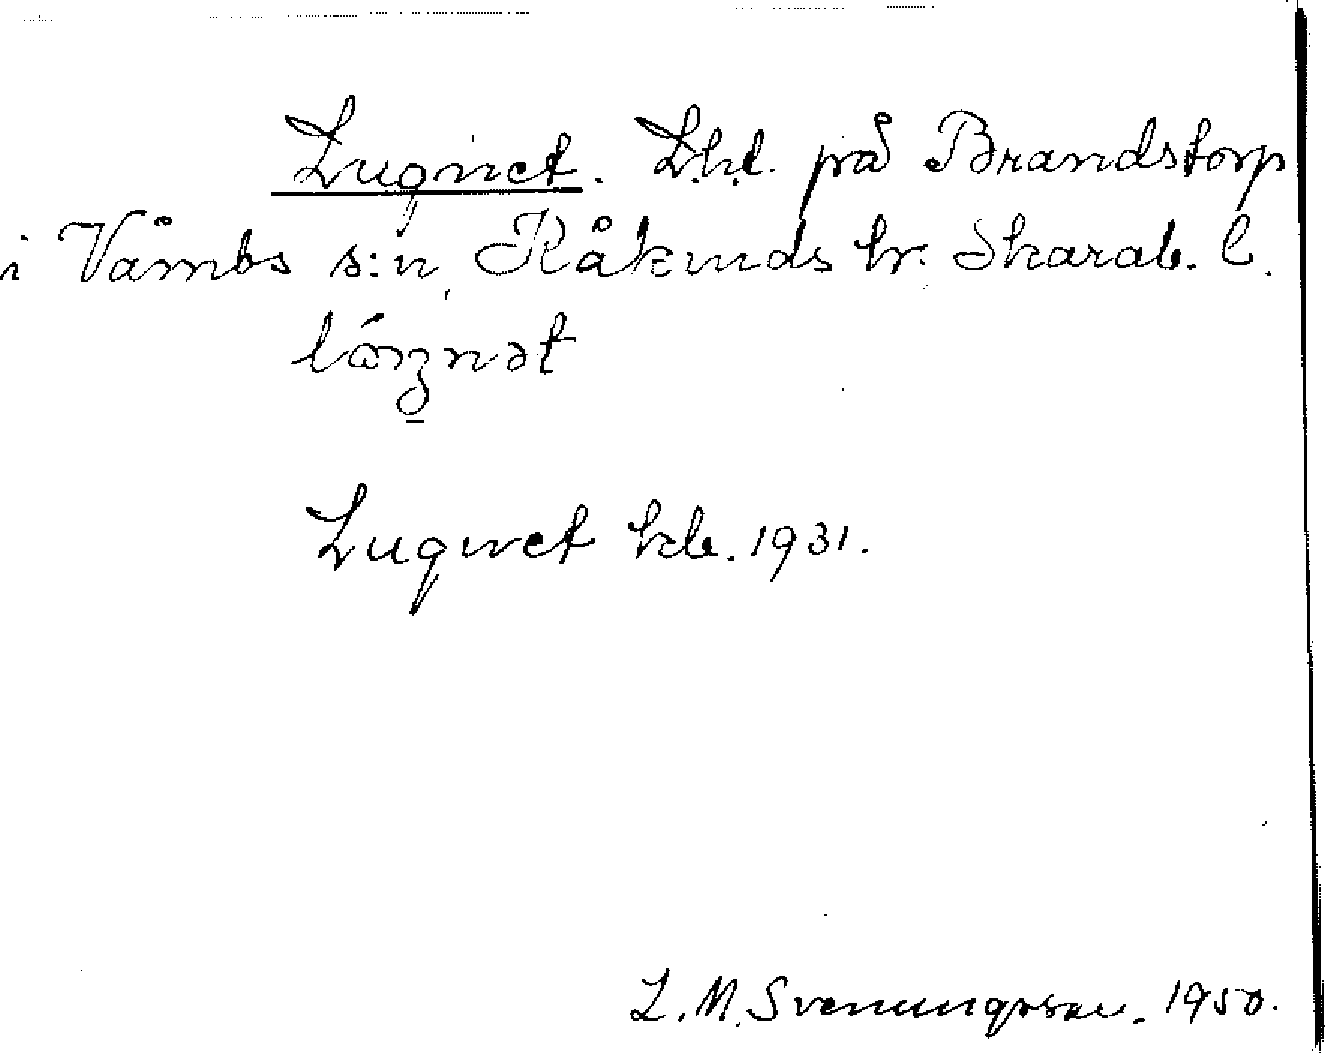 Lugnet. Lht. på Brandstorp
i Våmbs s:n, Kåkinds hr. Skarab. l.
Lugnet kb. 1931.
L. M. Svenungsson. 1950.